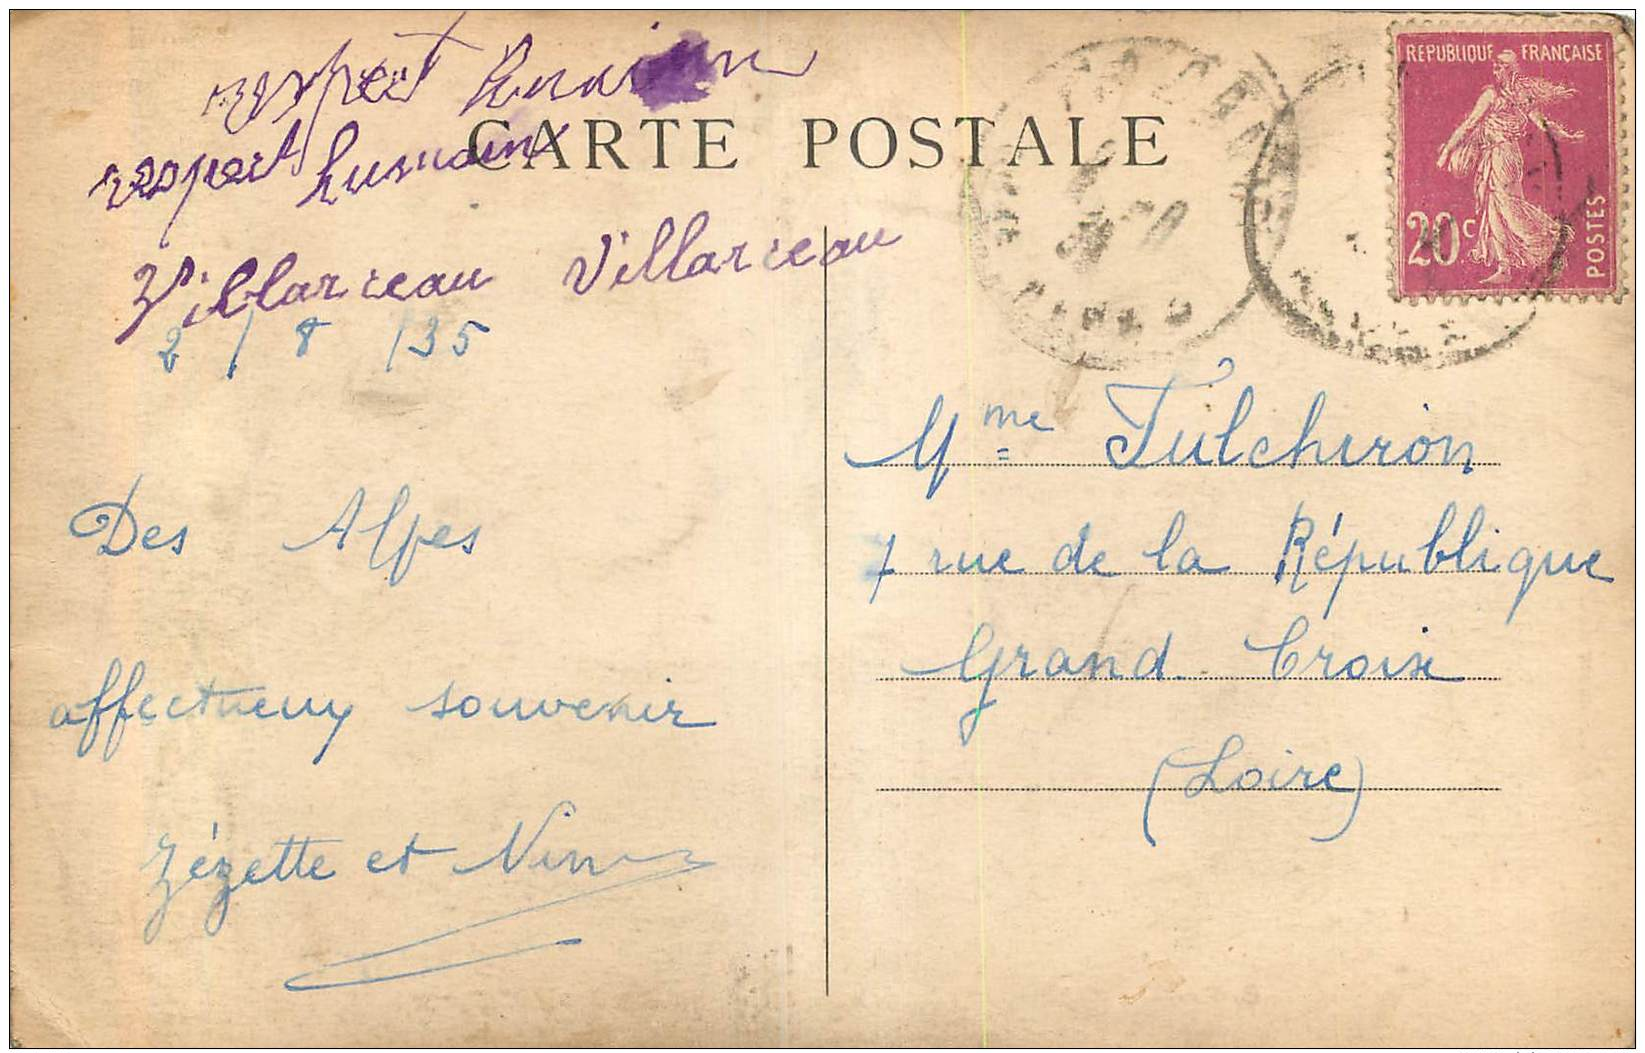 respect humain
respect humain
CARTE POSTALE
Villarceau Villarceau
2 / 8 / 35
Des Alpes
affectueux souvenir
Zézette et Nin
REPUBLIQUE FRANÇAISE
20c
POSTES
Mme Tulchiron
7 rue de la République
Grand. Croix
(Loire)